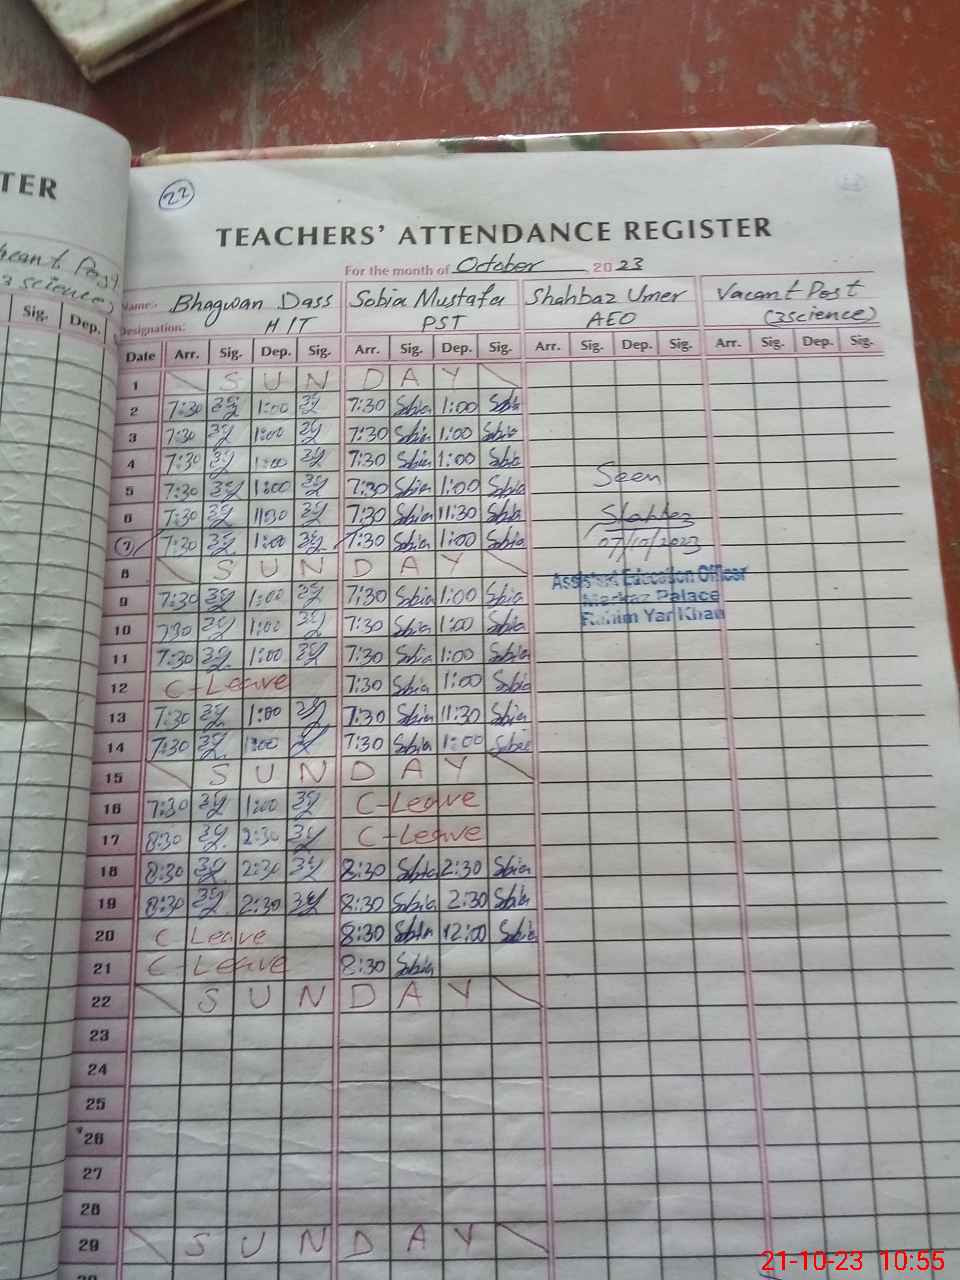 TER
22
TEACHERS' ATTENDANCE REGISTER
For the month of October 2023
Name:- Bhagwan Dass Sobia Mustafa Shahbaz Umer Vacant Post
Designation: HIT PST AEO (3science)
Sig. Dep.
Date Arr. Sig. Dep. Sig. Arr. Sig. Dep. Sig. Arr. Sig. Dep. Sig. Arr. Sig. Dep. Sig.
1 S U N D A Y
2 7:30 1:00 7:30 Sobia 1:00 Sobia
3 7:30 1:00 7:30 Sobia 1:00 Sobia
4 7:30 1:00 7:30 Sobia 1:00 Sobia
5 7:30 1:00 7:30 Sobia 1:00 Sobia Seen
6 7:30 11:30 7:30 Sobia 11:30 Sobia Shahbaz
7 7:30 1:00 7:30 Sobia 1:00 Sobia 07/10/2023
8 S U N D A Y Assistant Education Officer
9 7:30 1:00 7:30 Sobia 1:00 Sobia Markaz Palace
10 7:30 1:00 7:30 Sobia 1:00 Sobia Rahim Yar Khan
11 7:30 1:00 7:30 Sobia 1:00 Sobia
12 C-Leave 7:30 Sobia 1:00 Sobia
13 7:30 1:00 7:30 Sobia 11:30 Sobia
14 7:30 1:00 7:30 Sobia 1:00 Sobia
15 S U N D A Y
16 7:30 1:00 C-Leave
17 8:30 2:30 C-Leave
18 8:30 2:30 8:30 Sobia 2:30 Sobia
19 8:30 2:30 8:30 Sobia 2:30 Sobia
20 C Leave 8:30 Sobia 12:00 Sobia
21 C-Leave 8:30 Sobia
22 S U N D A Y
23
24
25
26
27
28
29 S U N D A Y
21-10-23 10:55